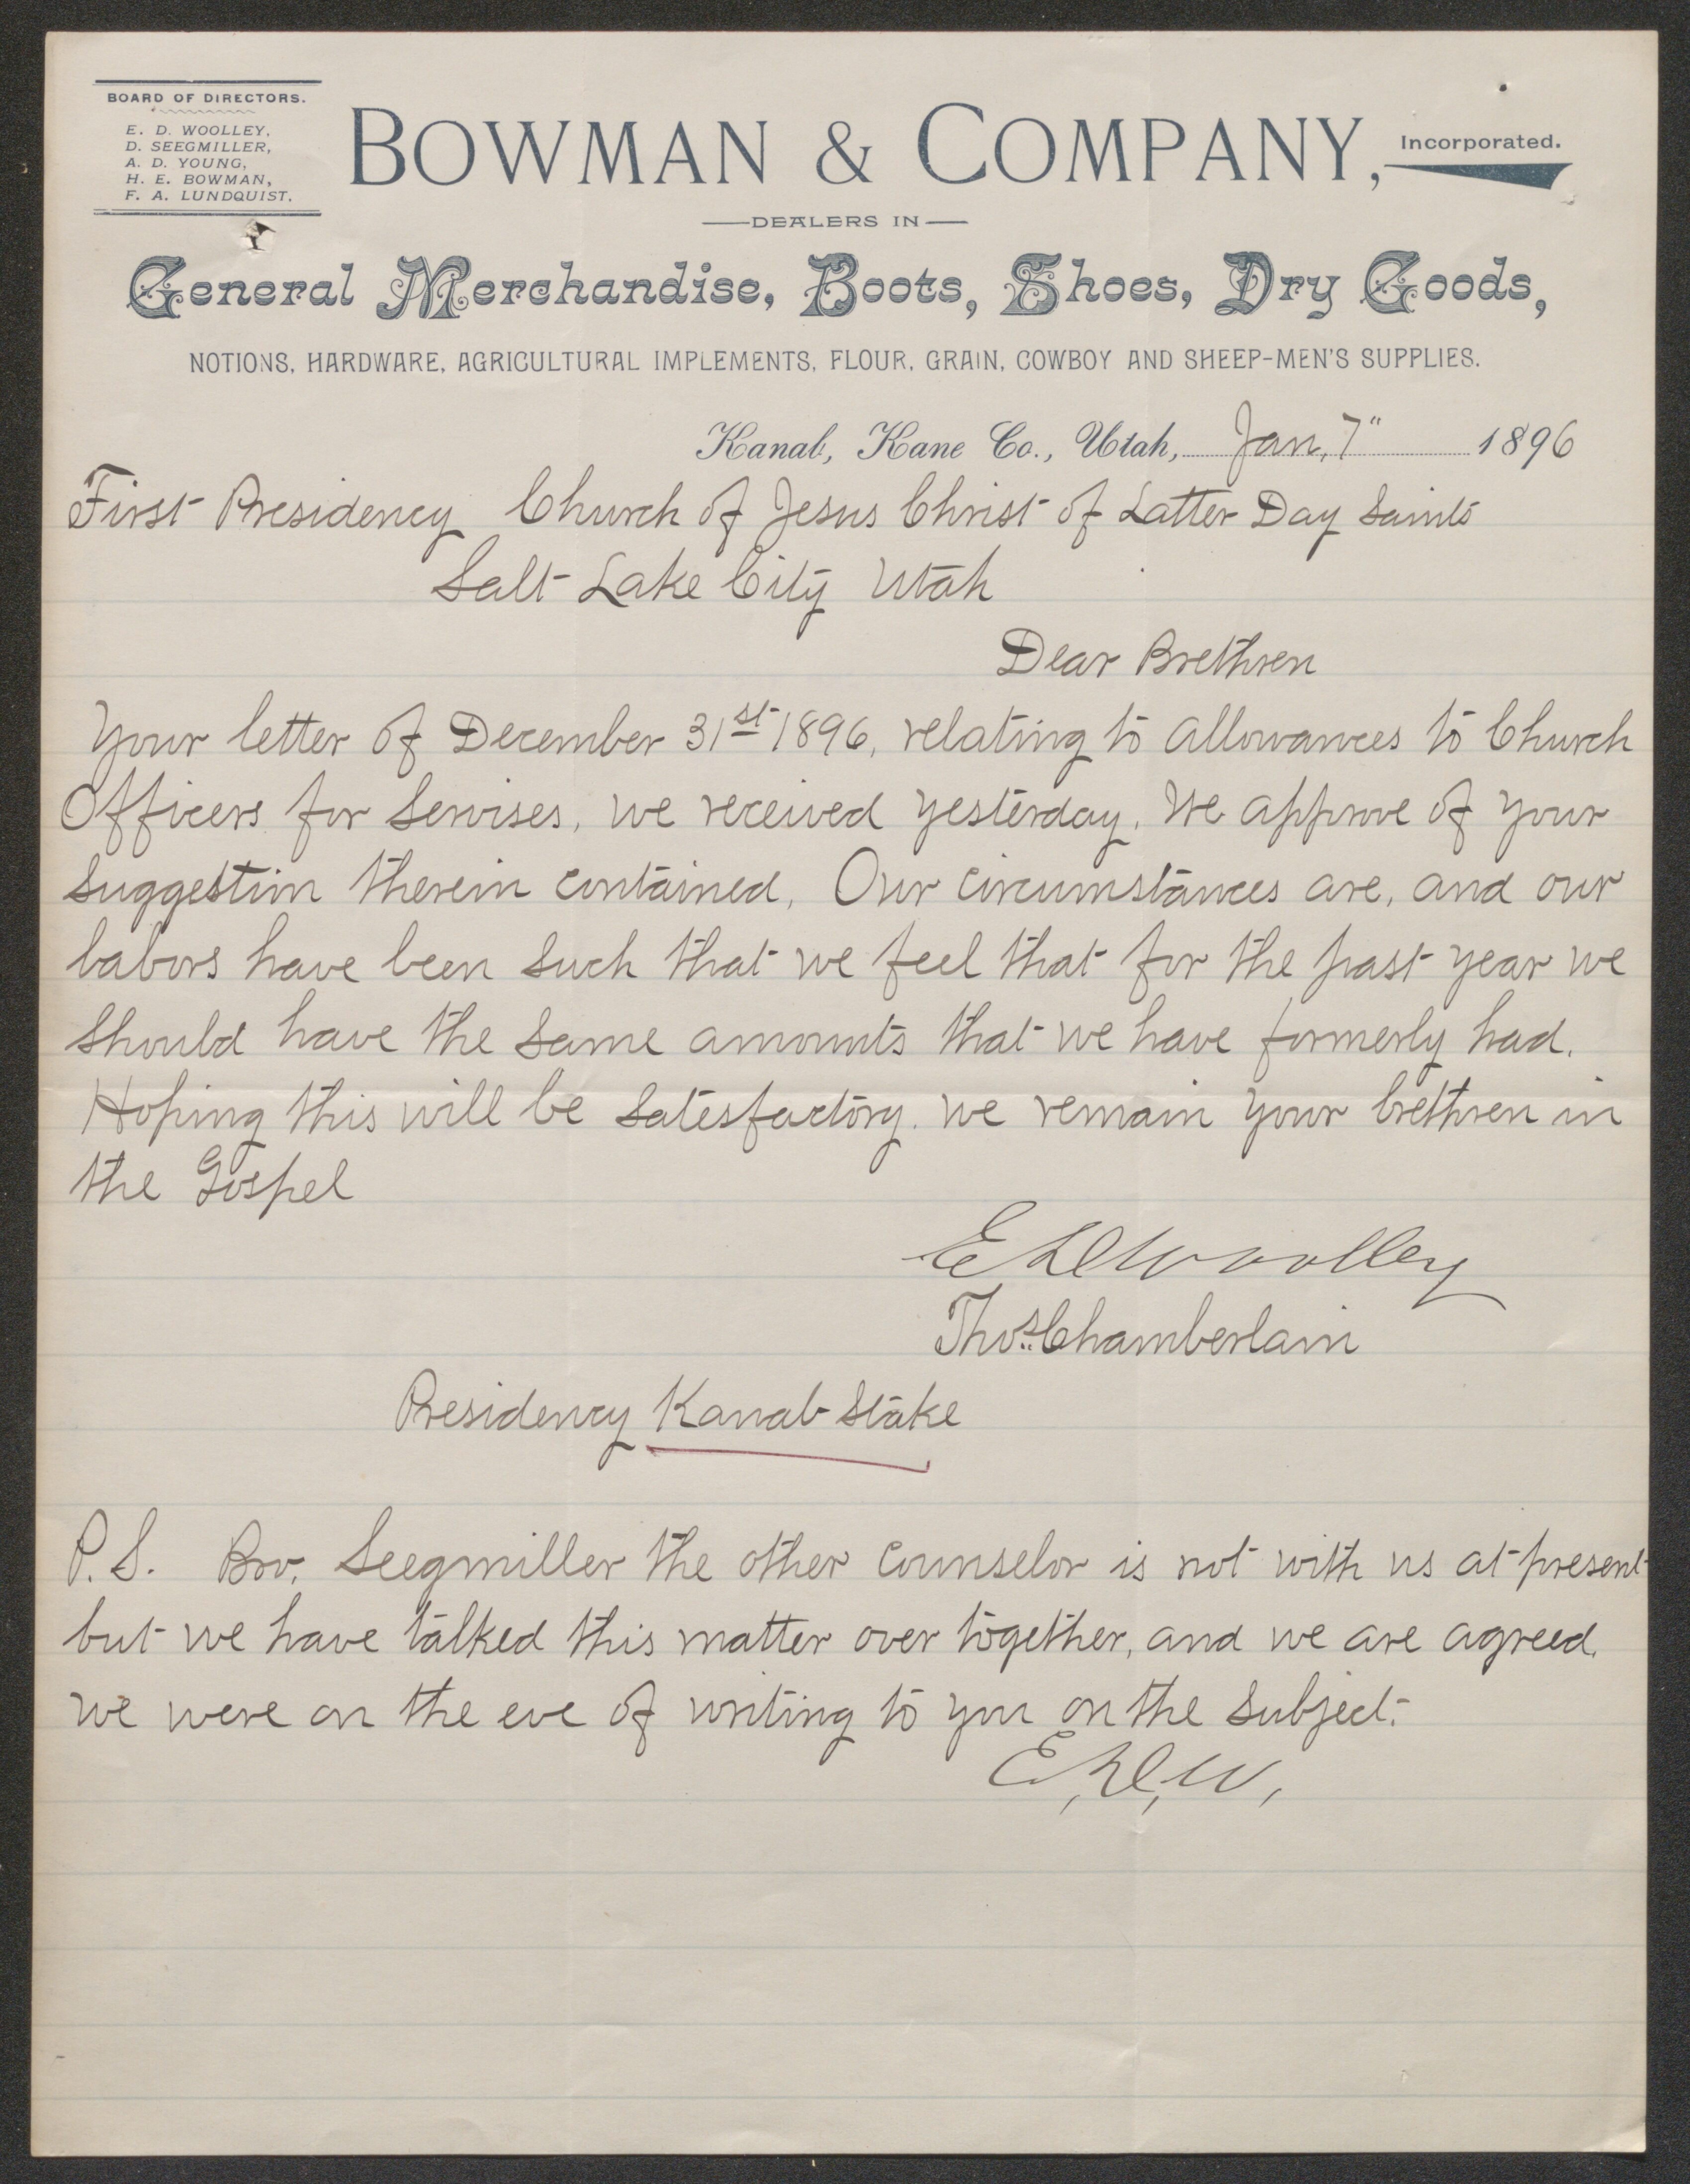 BOARD OF DIRECTORS.
E. D. WOOLLEY,
D. SEEGMILLER,
A. D. YOUNG,
H. E. BOWMAN,
F. A. LUNDQUIST.
BOWMAN & COMPANY, Incorporated.
DEALERS IN
General Merchandise, Boots, Shoes, Dry Goods,
NOTIONS, HARDWARE, AGRICULTURAL IMPLEMENTS, FLOUR, GRAIN, COWBOY AND SHEEP-MEN'S SUPPLIES.
Kanab, Kane Co., Utah, Jan, 7" 1896
First Presidency Church of Jesus Christ of Latter Day Saints
Salt Lake City Utah
Dear Brethren
Your letter of December 31st 1896, relating to allowances to Church
Officers for Servises, we received yesterday. We approve of your
Suggestion therein contained, Our circumstances are, and our
labors have been such that we feel that for the past year we
should have the same amounts that we have formerly had.
Hoping this will be Satesfactory. we remain your brethren in
the Gospel
E D Woolley
Thos. Chamberlain
Presidency Kanab Stake
P.S. Bro. Seegmiller the other counselor is not with us at present
but we have talked this matter over together, and we are agreed.
we were on the eve of writing to you on the subject.
E, D, W,